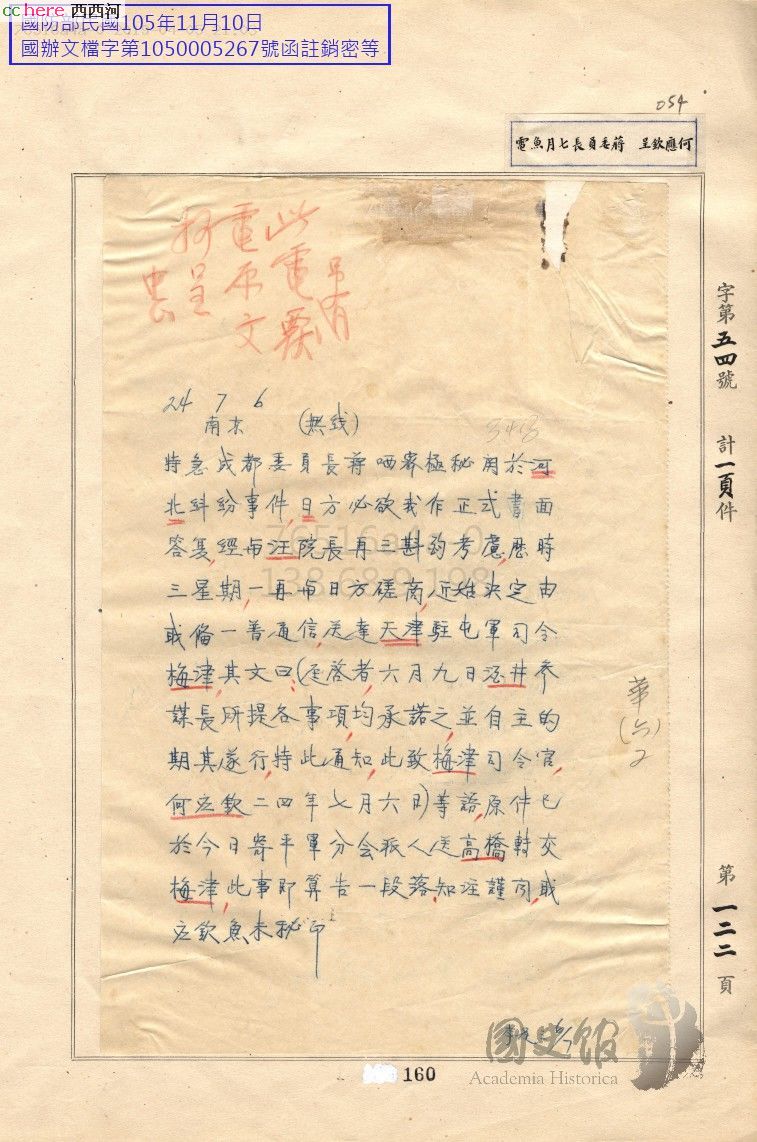 cchere 西西河
國防部民國105年11月10日
國辦文檔字第1050005267號函註銷密等
054
何應欽呈 蔣委員長七月魚電
此電原文
24 7 6
南京 (無线)
特急成都委員長蔣 極秘關於河
北糾紛事件,日方必欲我作正式書面
答复,經与汪院長再三斟酌考慮,歷時
三星期,一再与日方磋商,近始決定由
職備一普通信,送達天津駐屯軍司令
梅津,其文曰:(逕啓者,六月九日酒井参
謀長所提各事項,均承諾之,並自主的
期其遂行,特此通知,此致梅津司令官,
何应欽二四年七月六日)等語,原件已
於今日寄平軍分会派人送高橋轉交
梅津,此事即算告一段落,知注謹聞,職
应欽魚未秘印
字第五四號 計一頁件 第一二二頁
華(六)2
160
國史館
Academia Historica